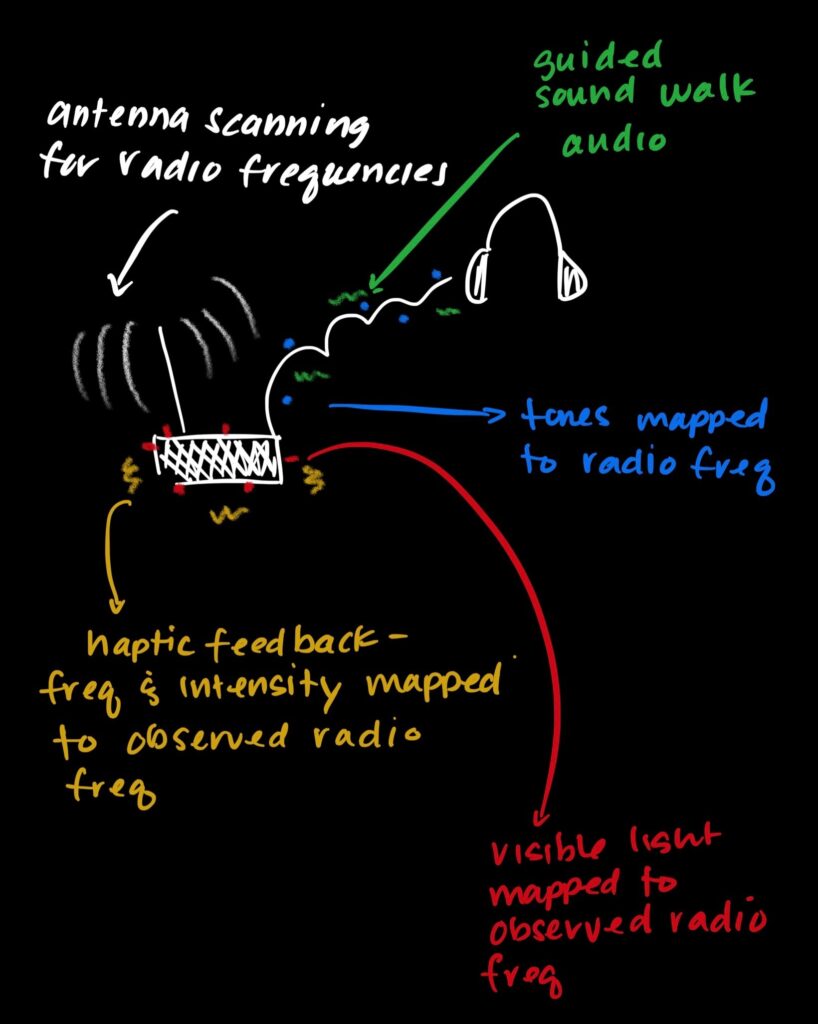 guided
sound walk
audio
antenna scanning
for radio frequencies
tones mapped
to radio freq
haptic feedback -
freq & intensity mapped
to observed radio
freq
visible light
mapped to
observed radio
freq